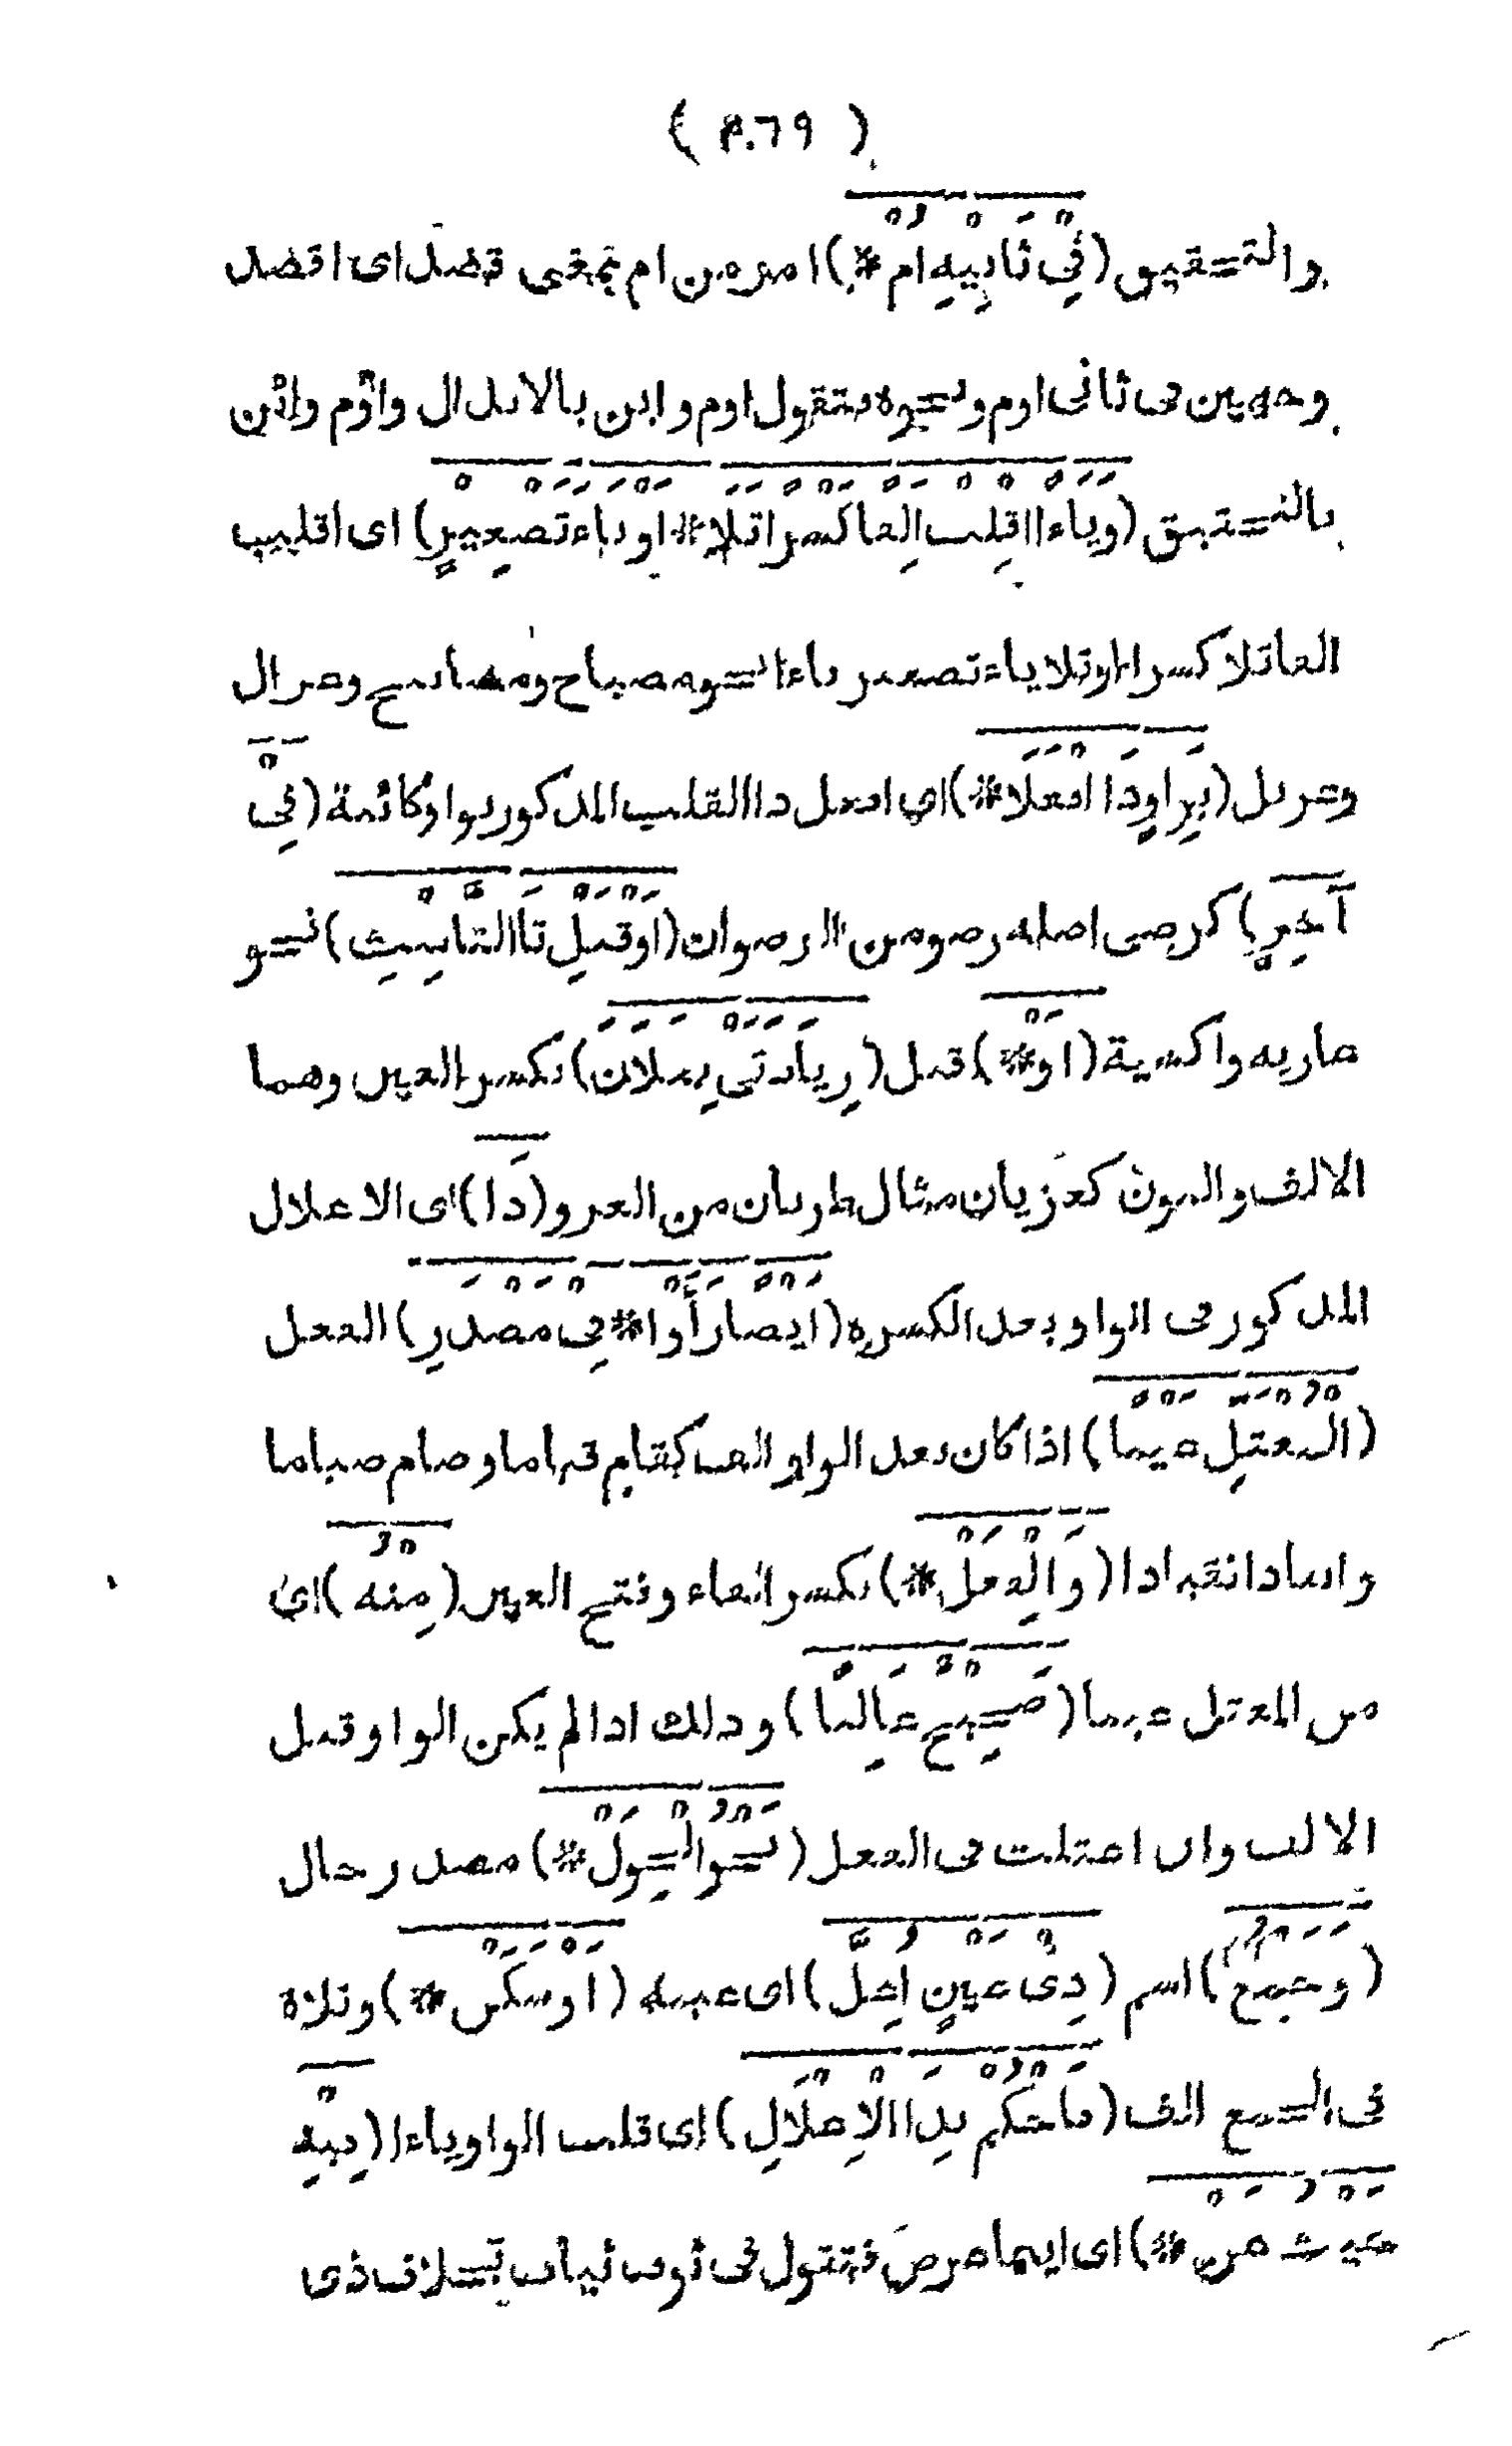 ( ٣٠٦٩ )
والتحقيق (فِي ثَانِيهِ أُمْ *) امر من ام بمعنى قصد اى اقصد
وجهين فى ثانى اوم ونحوه فتقول اوم واين بالابدال واؤم وائن
بالتحقيق (وَيَاءً اقْلِبْ أَلِفًا كَسْرًا تَلَا * اَوْ يَاءَ تَصْغِيرٍ) اى اقلب
الفا تلا كسرا او تلا ياء تصغير ياء نحو مصباح ومصابيح وغزال
وغزيل (بِوَاوٍ ذَا افْعَلَا *) اى افعل ذا القلب المذكور بواو كائنة (فِي
آخِرٍ) كرضى اصله رضو من الرضوان (اَوْ قَبْلَ تَا التَّأْنِيثِ) نحو
غازية واكسية (اَوْ *) قبل (زِيَادَتَيْ فَعِلَانَ) بكسر العين وهما
الالف والنون كغزيان مثال ظربان من الغزو (ذَا) اى الاعلال
المذكور فى الواو بعد الكسرة (اَيْضًا رَأَوْا * فِي مَصْدَرِ) الفعل
(الْمُعْتَلِّ عَيْنًا) اذا كان بعد الواو الف كقام قياما وصام صياما
وانقاد انقيادا (وَالْفِعَلْ *) بكسر الفاء وفتح العين (مِنْهُ) اى
من المعتل عينا (صَحِيحٌ غَالِبًا) وذلك اذا لم يكن الواو قبل
الالف وان اعتلت فى الفعل (نَحْوُ الْحِوَلْ *) مصدر حال
(وَجَمْعُ) اسم (ذِي عَيْنٍ اُعِلَّ) اى عينه (اَوْ سَكَنْ *) وتلاه
فى الجمع الف (فَاحْكُمْ بِذَا الْاِعْلَالِ) اى قلب الواو ياءا (فِيهِ
حَيْثُ عَنّْ *) اى اينما عرض فتقول فى ثوب ثياب بخلاف ذى